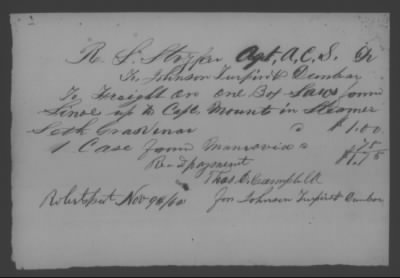 R. S. Stryker Agt, A, C, S, Dr
To Johnson Turpin & Dunbar
To Freight on one Box Laws from
Sinoe up to Cape Mount in Steamer
Seth Grosvenor " $1.00
1 Case from Monrovia " 75
$1.75
Recd payment
Thos. C. Campbell
Robertsport Nov 9th/60 For Johnson Turpin & Dunbar